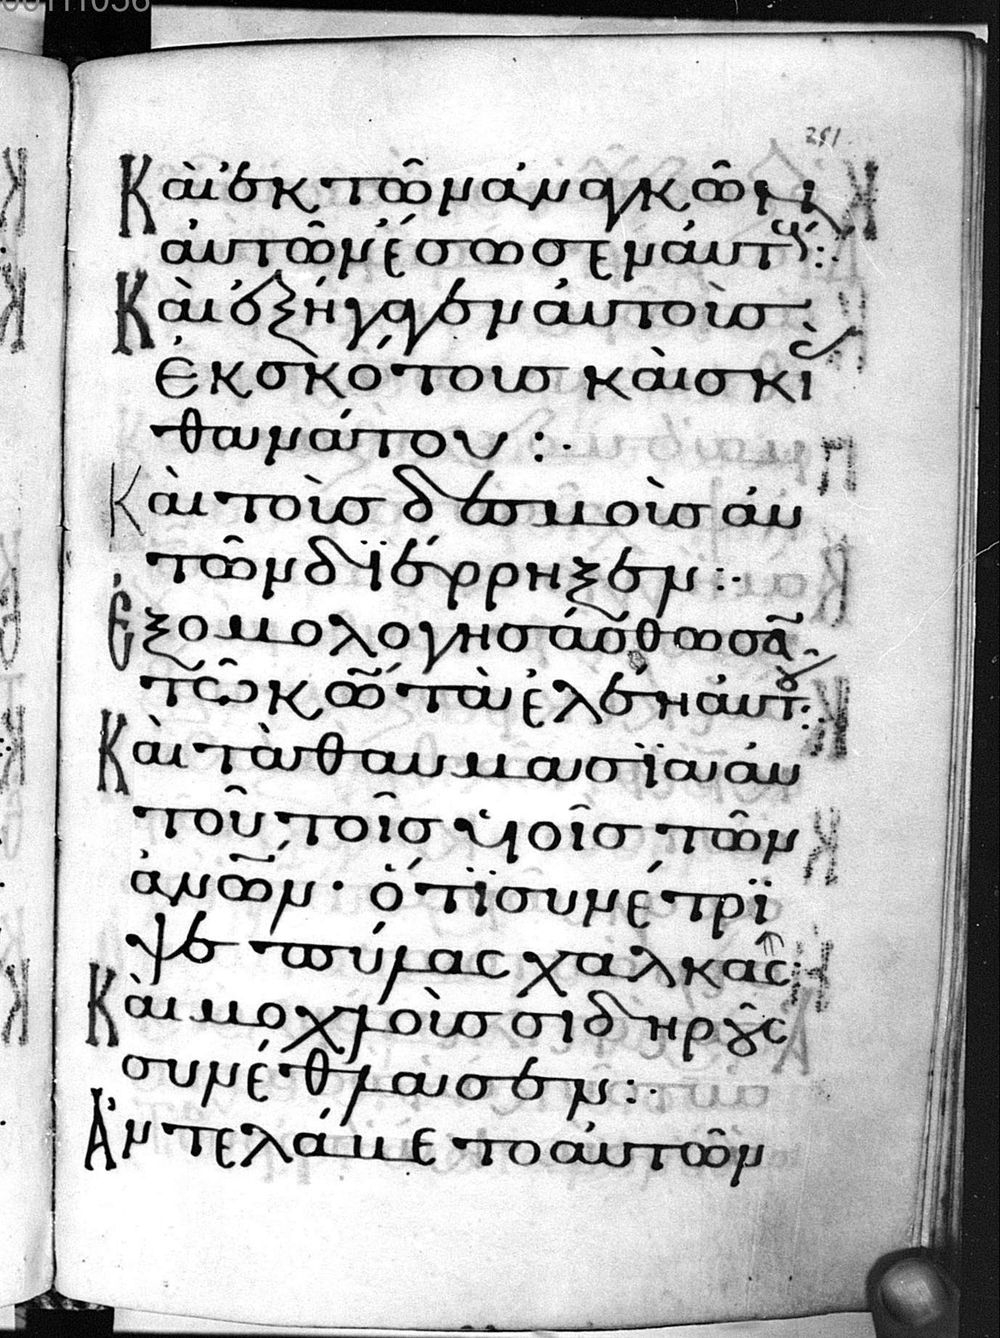 251
Καὶ ἐκ τῶν ἀναγκῶν
αὐτῶν ἔσωσεν αὐτούς:
Καὶ ἐξήγαγεν αὐτοὺσ
ἐκ σκότουσ καὶ σκιᾶς
θανάτου :·
Καὶ τοὺσ δεσμοὺσ αυ
τῶν δϊέρρηξεν :·
Ἐξομολογησάσθωσαν
τῶ κω τὰ ἐλέη αὐτοῦ:
Καὶ τὰ θαυμασϊα αυ
τοῦ τοῖσ υἱοῖσ τῶν
ἀνων· ὅτϊ συνέτρϊ
ψε πύλας χαλκας
Καὶ μοχλοὺσ σιδηροῦς
συνέθλασεν :·
Ἀντελάβετο αὐτῶν